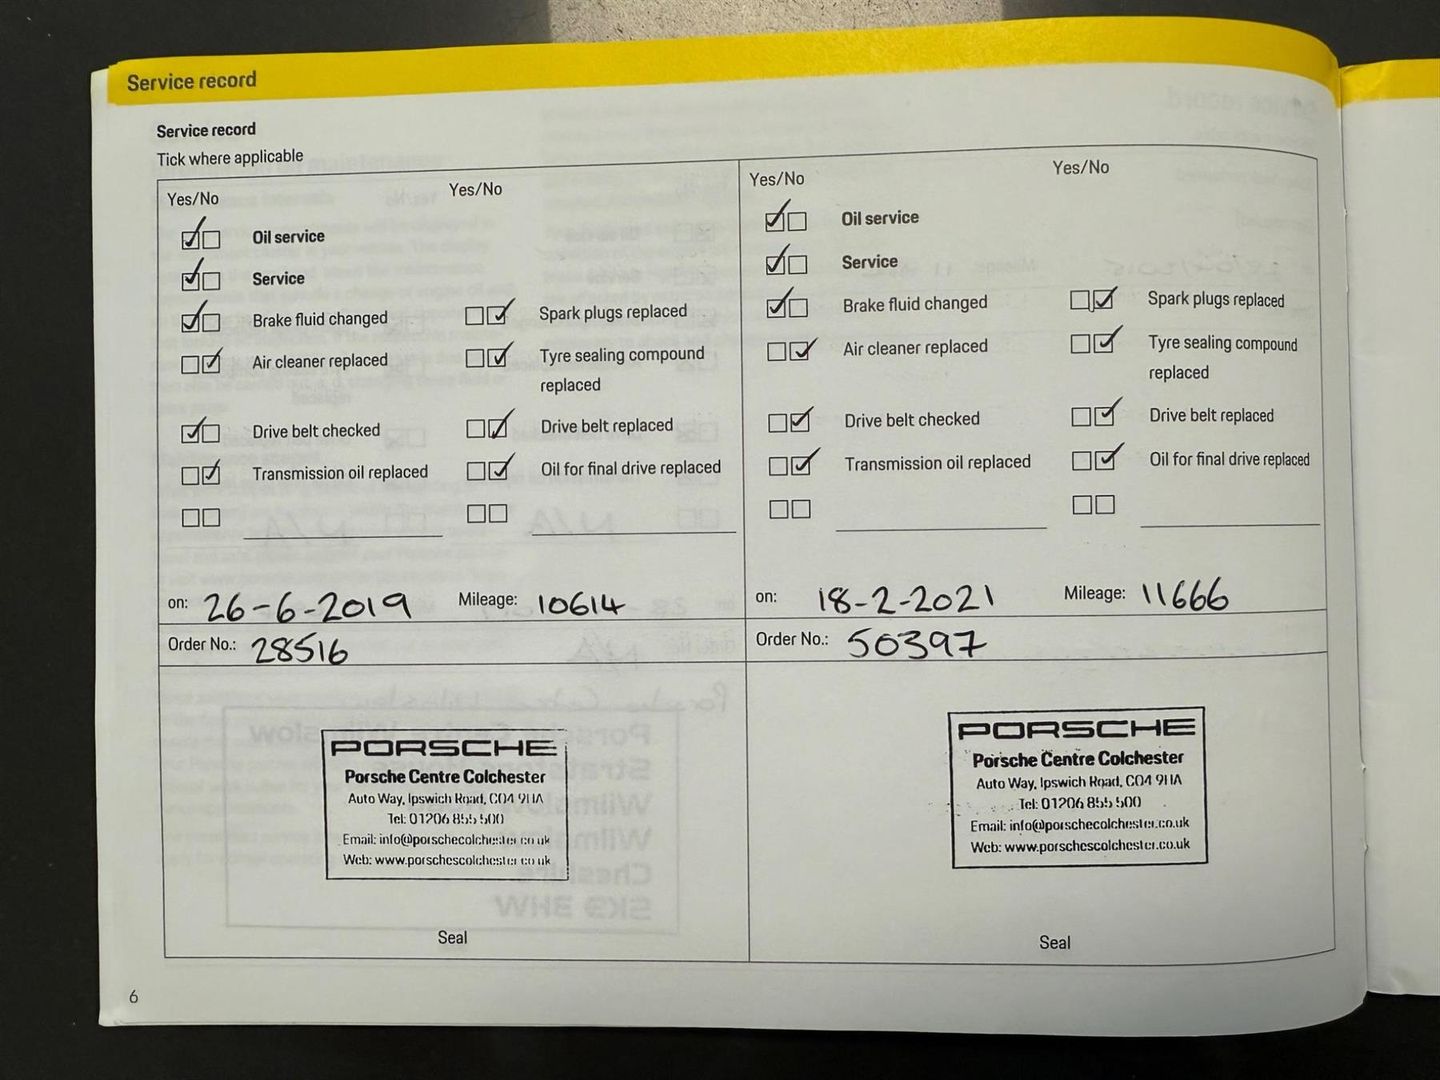 Service record
Service record
Tick where applicable
Yes/No
Yes/No
Oil service
Service
Brake fluid changed
Spark plugs replaced
Air cleaner replaced
Tyre sealing compound
replaced
Drive belt checked
Drive belt replaced
Transmission oil replaced
Oil for final drive replaced
on: 26-6-2019 Mileage: 10614
Order No.: 28516
PORSCHE
Porsche Centre Colchester
Auto Way, Ipswich Road, CO4 9HA
Tel: 01206 855 500
Email: info@porschecolchester.co.uk
Web: www.porschescolchester.co.uk
Seal
Yes/No
Yes/No
Oil service
Service
Brake fluid changed
Spark plugs replaced
Air cleaner replaced
Tyre sealing compound
replaced
Drive belt checked
Drive belt replaced
Transmission oil replaced
Oil for final drive replaced
on: 18-2-2021 Mileage: 11666
Order No.: 50397
PORSCHE
Porsche Centre Colchester
Auto Way, Ipswich Road, CO4 9HA
Tel: 01206 855 500
Email: info@porschecolchester.co.uk
Web: www.porschecolchester.co.uk
Seal
6